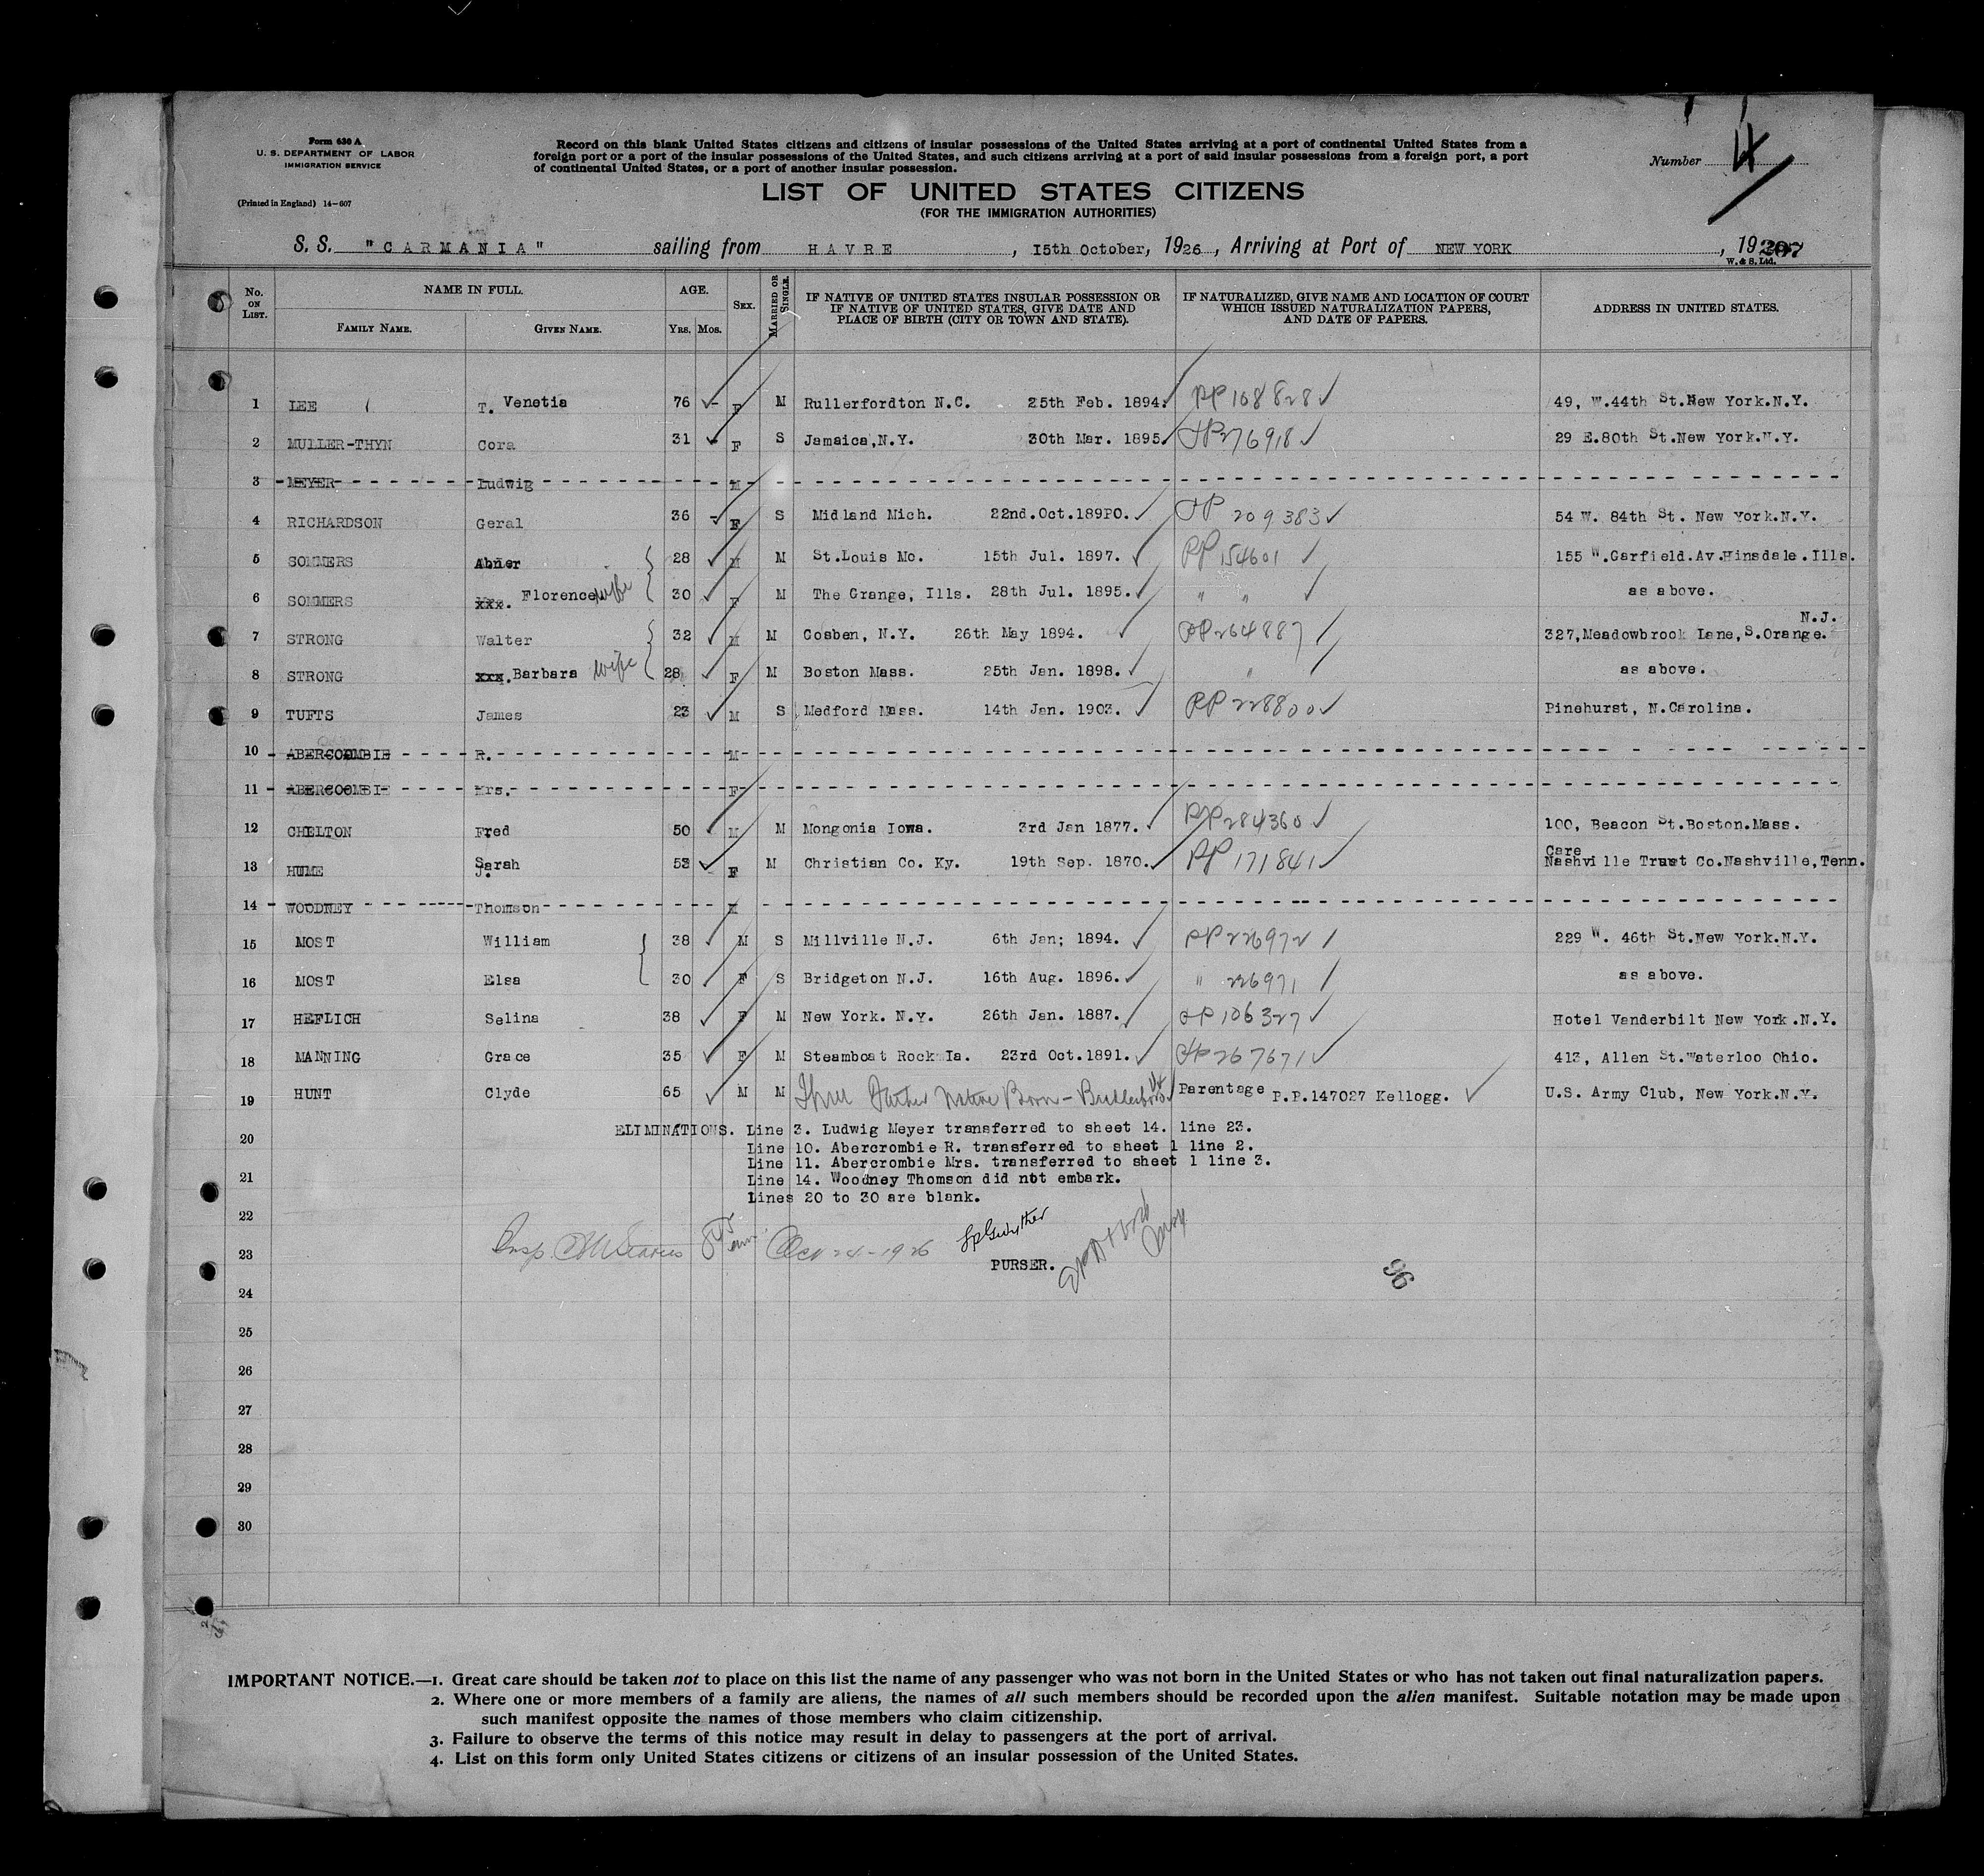 Form 630 A
U. S. DEPARTMENT OF LABOR
IMMIGRATION SERVICE
(Printed in England) 14-607
Record on this blank United States citizens and citizens of insular possessions of the United States arriving at a port of continental United States from a
foreign port or a port of the insular possessions of the United States, and such citizens arriving at a port of said insular possessions from a foreign port, a port
of continental United States, or a port of another insular possession.
Number 4
LIST OF UNITED STATES CITIZENS
(FOR THE IMMIGRATION AUTHORITIES)
S. S. "CARMANIA" sailing from HAVRE, 15th October, 1926, Arriving at Port of NEW YORK, 19
207
W. & S. Ltd.
No. ON LIST. NAME IN FULL. AGE. SEX. MARRIED OR SINGLE. IF NATIVE OF UNITED STATES INSULAR POSSESSION OR IF NATIVE OF UNITED STATES, GIVE DATE AND PLACE OF BIRTH (CITY OR TOWN AND STATE). IF NATURALIZED, GIVE NAME AND LOCATION OF COURT WHICH ISSUED NATURALIZATION PAPERS, AND DATE OF PAPERS. ADDRESS IN UNITED STATES.
FAMILY NAME. GIVEN NAME. YRS. MOS.
1 LEE T. Venetia 76 - F M Rullerfordton N.C. 25th Feb. 1894. PP 108828 49, W.44th St.New York.N.Y.
2 MULLER-THYN Cora 31 - F S Jamaica,N.Y. 30th Mar. 1895. PP 276918 29 E.80th St.New York.N.Y.
3 MEYER Ludwig M
4 RICHARDSON Geral 36 - F S Midland Mich. 22nd.Oct.1890. PP 209383 54 W. 84th St. New York.N.Y.
5 SOMMERS Abner 28 M M St.Louis Mo. 15th Jul. 1897. PP 154601 155 W.Garfield.Av.Hinsdale.Ills.
6 SOMMERS xxx. Florence wife 30 F M The Grange, Ills. 28th Jul. 1895. " " as above.
7 STRONG Walter 32 M M Cosben, N.Y. 26th May 1894. PP 264887 327,Meadowbrook Lane,S.Orange. N.J.
8 STRONG xxx.Barbara wife 28 F M Boston Mass. 25th Jan. 1898. " as above.
9 TUFTS James 23 M S Medford Mass. 14th Jan. 1903. PP 228800 Pinehurst, N.Carolina.
10 ABERCOOMBIE R. M
11 ABERCOOMBIE Mrs. F
12 CHELTON Fred 50 M M Mongonia Iowa. 3rd Jan 1877. PP 284360 100, Beacon St.Boston.Mass.
13 HUME J. Sarah 53 F M Christian Co. Ky. 19th Sep. 1870. PP 171841 Care Nashville Trust Co.Nashville,Tenn.
14 WOODNEY Thomson M
15 MOST William 38 M S Millville N.J. 6th Jan; 1894. PP 226972 229 W. 46th St.New York.N.Y.
16 MOST Elsa 30 F S Bridgeton N.J. 16th Aug. 1896. " 226971 as above.
17 HEFLICH Selina 38 F M New York. N.Y. 26th Jan. 1887. PP 106327 Hotel Vanderbilt New York.N.Y.
18 MANNING Grace 35 F M Steamboat Rock Ia. 23rd Oct.1891. PP 267671 413, Allen St.Waterloo Ohio.
19 HUNT Clyde 65 M M Father Native Born - Parentage P.P.147027 Kellogg. U.S. Army Club, New York.N.Y.
20 ELIMINATIONS. Line 3. Ludwig Meyer transferred to sheet 14. line 23.
Line 10. Abercrombie R. transferred to sheet 1 line 2.
Line 11. Abercrombie Mrs. transferred to sheet 1 line 3.
21 Line 14. Woodney Thomson did not embark.
Lines 20 to 30 are blank.
22
23 Insp. Oct 24-1926 PURSER.
96
24
25
26
27
28
29
30
IMPORTANT NOTICE.—1. Great care should be taken not to place on this list the name of any passenger who was not born in the United States or who has not taken out final naturalization papers.
2. Where one or more members of a family are aliens, the names of all such members should be recorded upon the alien manifest. Suitable notation may be made upon
such manifest opposite the names of those members who claim citizenship.
3. Failure to observe the terms of this notice may result in delay to passengers at the port of arrival.
4. List on this form only United States citizens or citizens of an insular possession of the United States.